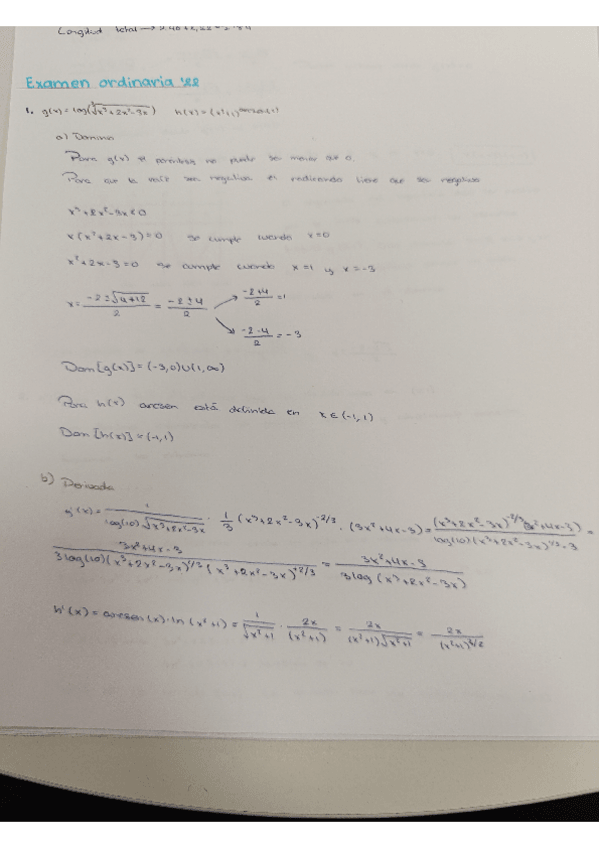 Longitud total →
Examen ordinaria '22
1. g(x) = log(∛x³+2x²-3x) h(x) = (x²+1)^arcsen(x)
a) Dominio
Para g(x) el no puede ser menor que 0.
Para que la raíz sea negativa el radicando tiene que ser negativo
x³+2x²-3x<0
x(x²+2x-3)=0 se cumple cuando x=0
x²+2x-3=0 se cumple cuando x=1 y x=-3
x = (-2±√4+12)/2 = (-2±4)/2 → (-2+4)/2 = 1
↘ (-2-4)/2 = -3
Dom[g(x)] = (-3,0)∪(1,∞)
Para h(x) arcsen está definida en x∈(-1,1)
Dom[h(x)] = (-1,1)
b) Derivada
g'(x) = 1/(log(10)∛x³+2x²-3x) · 1/3 (x³+2x²-3x)^-2/3 · (3x²+4x-3) =
(3x²+4x-3)/(3log(10)(x³+2x²-3x)^1/3 (x³+2x²-3x)^+2/3) = (3x²+4x-3)/(3log(x³+2x²-3x))
h'(x) = arcsen(x)·ln(x²+1) = 1/√x²+1 · 2x/(x²+1) = 2x/((x²+1)√x²+1) = 2x/(x²+1)^3/2